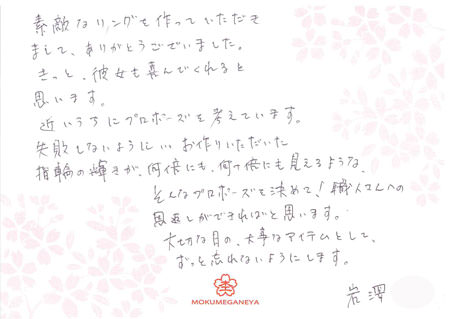 素敵なリングを作っていただき
まして、ありがとうございました。
きっと、彼女も喜んでくれると
思います。
近いうちにプロポーズを考えています。
失敗しないように、お作りいただいた
指輪の輝きが、何倍にも、何倍にも見えるような、
そんなプロポーズを決めて！職人さんへの
恩返しができればと思います。
大切な日の、大事なアイテムとして、
ずっと忘れないようにします。
岩澤
MOKUMEGANEYA